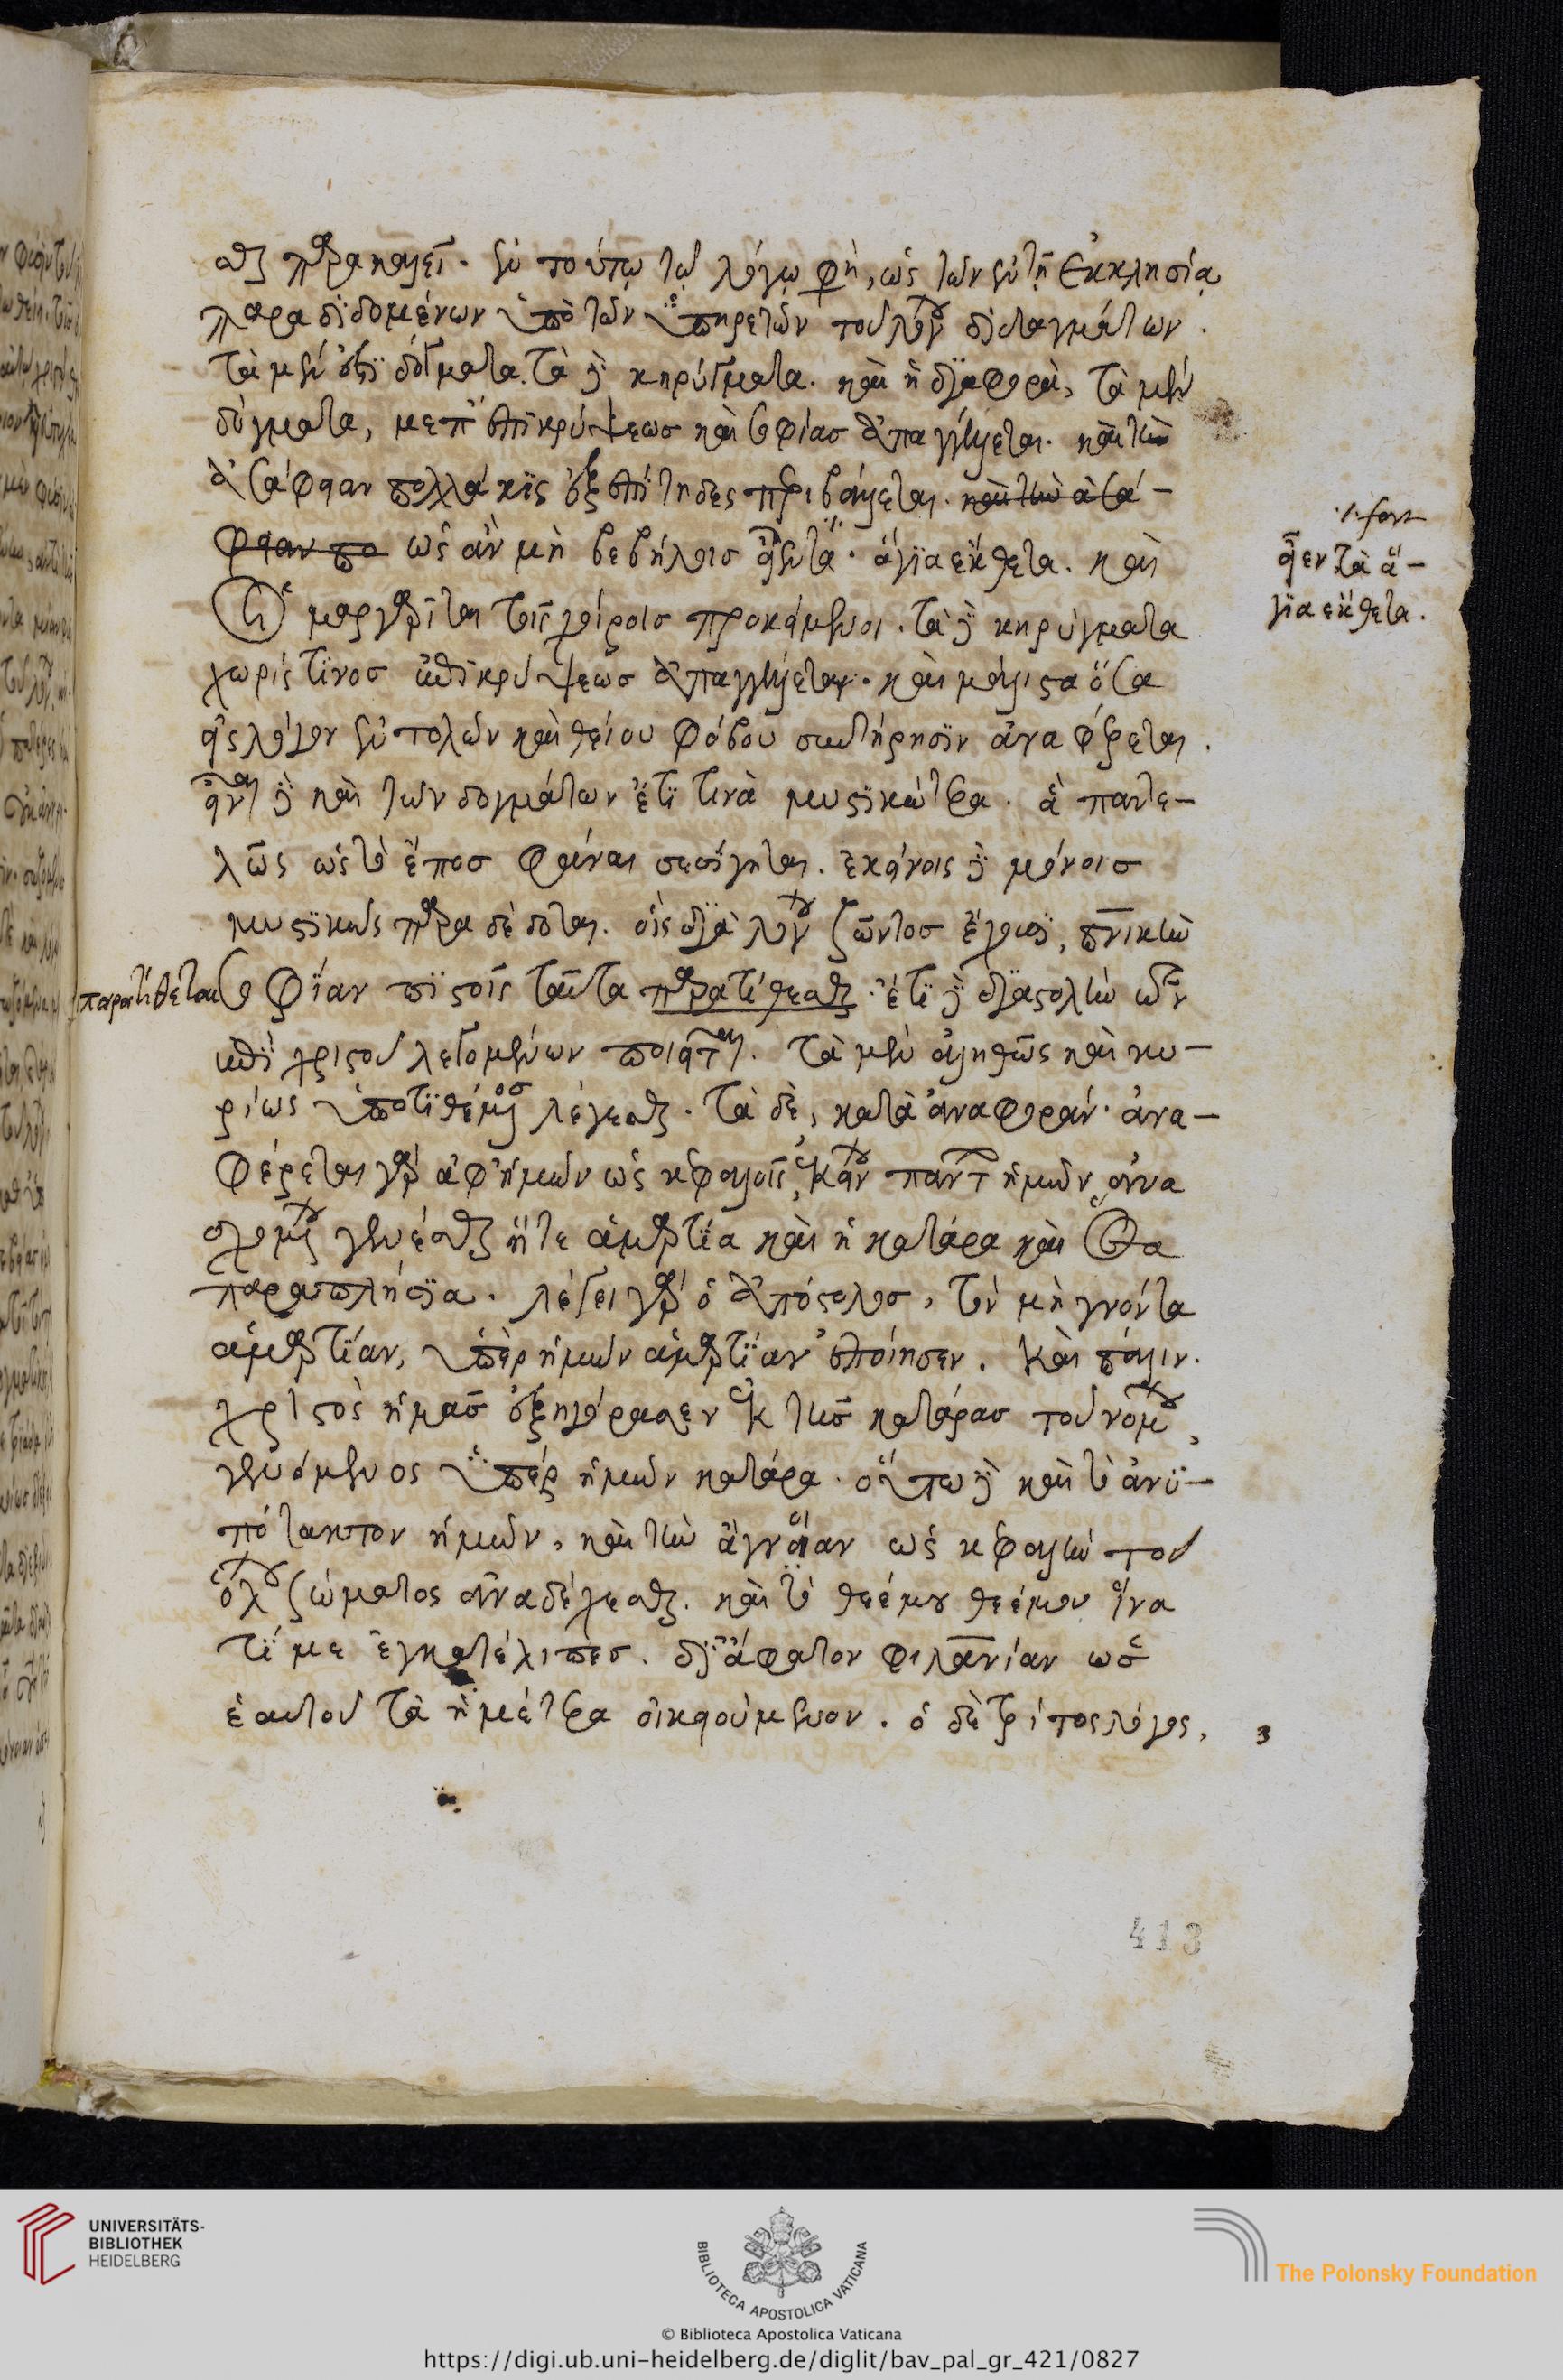 σθαι παρακαλεῖ. ἐν τούτῳ τῷ λόγῳ φησὶ, ὡς τῶν ἐν τῇ Ἐκκλησίᾳ
παραδιδομένων ὑπὸ τῶν ὑπηρετῶν τοῦ λόγου διαταγμάτων.
τὰ μέν ἐστι δόγματα. τὰ δὲ κηρύγματα. καὶ ἡ διαφορὰ, τὰ μὲν
δόγματα, μετ' ἐπικρύψεως καὶ σοφίας ἀπαγγέλλεται. καὶ τὴν
ἀσάφειαν πολλάκις ἐξεπίτηδες περιβάλλεται. καὶ τὴν ἀσά-
φειαν πο ὡς ἂν μὴ βεβήλοις εἶεν τὰ. ἅγια ἔκθετα. καὶ
οἱ μαργαρῖται τοῖς χοίροις προκείμενοι. τὰ δὲ κηρύγματα
χωρίς τινος ἐπικρύψεως ἀπαγγέλλεται. καὶ μάλιστα ὅσα
εἰς λόγον ἐντολῶν καὶ θείου φόβου συντήρησιν ἀναφέρεται.
εἶναι δὲ καὶ τῶν δογμάτων ἔτι τινὰ μυστικώτερα. ἃ παντε-
λῶς ὡς τὸ ἔπος φάναι σεσίγηται. ἐκείνοις δὲ μόνοις
μυστικῶς παραδέδοται. οἷς διὰ λόγου ζῶντος ἔχουσι, πνικὴν
σοφίαν πιστοῖς ταῦτα παρατίθεσθαι. ἔτι δὲ διαστολὴν τῶν
παρατίθεται
ἐπὶ χριστοῦ λεγομένων ποιεῖται. τὰ μὲν ἀληθῶς καὶ κυ-
ρίως ὑποτιθέμενος λέγεσθαι. τὰ δὲ, κατὰ ἀναφοράν. ἀνα-
φέρεται γὰρ ἀφ' ἡμῶν ὡς κεφαλῆς, ἐκείνου πάντα ἡμῶν ἀνα
δεχομένου γενέσθαι ἥτε ἁμαρτία καὶ ἡ κατάρα καὶ ὅσα
παραπλήσια. λέγει γὰρ ὁ ἀπόστολος, τὸν μὴ γνόντα
ἁμαρτίαν, ὑπὲρ ἡμῶν ἁμαρτίαν ἐποίησεν. Καὶ πάλιν.
χριστὸς ἡμᾶς ἐξηγόρασεν ἐκ τῆς κατάρας τοῦ νόμου,
γενόμενος ὑπὲρ ἡμῶν κατάρα. οὕτω δὲ καὶ τὸ ἀνυ-
πότακτον ἡμῶν, καὶ τὴν ἄγνοιαν ὡς κεφαλὴν τοῦ
ὅλου σώματος ἀναδέχεσθαι. καὶ τὸ θεέ μου θεέ μου ἵνα
τί με ἐγκατέλιπες. δι' ἄφατον φιλανίαν ὡς
ἑαυτοῦ τὰ ἡμέτερα οἰκειούμενον. ὁ δὲ τρίτος λόγος,
εἶεν τὰ ἅ-
για ἔκθετα.
3
413
UNIVERSITÄTS-
BIBLIOTHEK
HEIDELBERG
BIBLIOTECA APOSTOLICA VATICANA
The Polonsky Foundation
© Biblioteca Apostolica Vaticana
https://digi.ub.uni-heidelberg.de/diglit/bav_pal_gr_421/0827